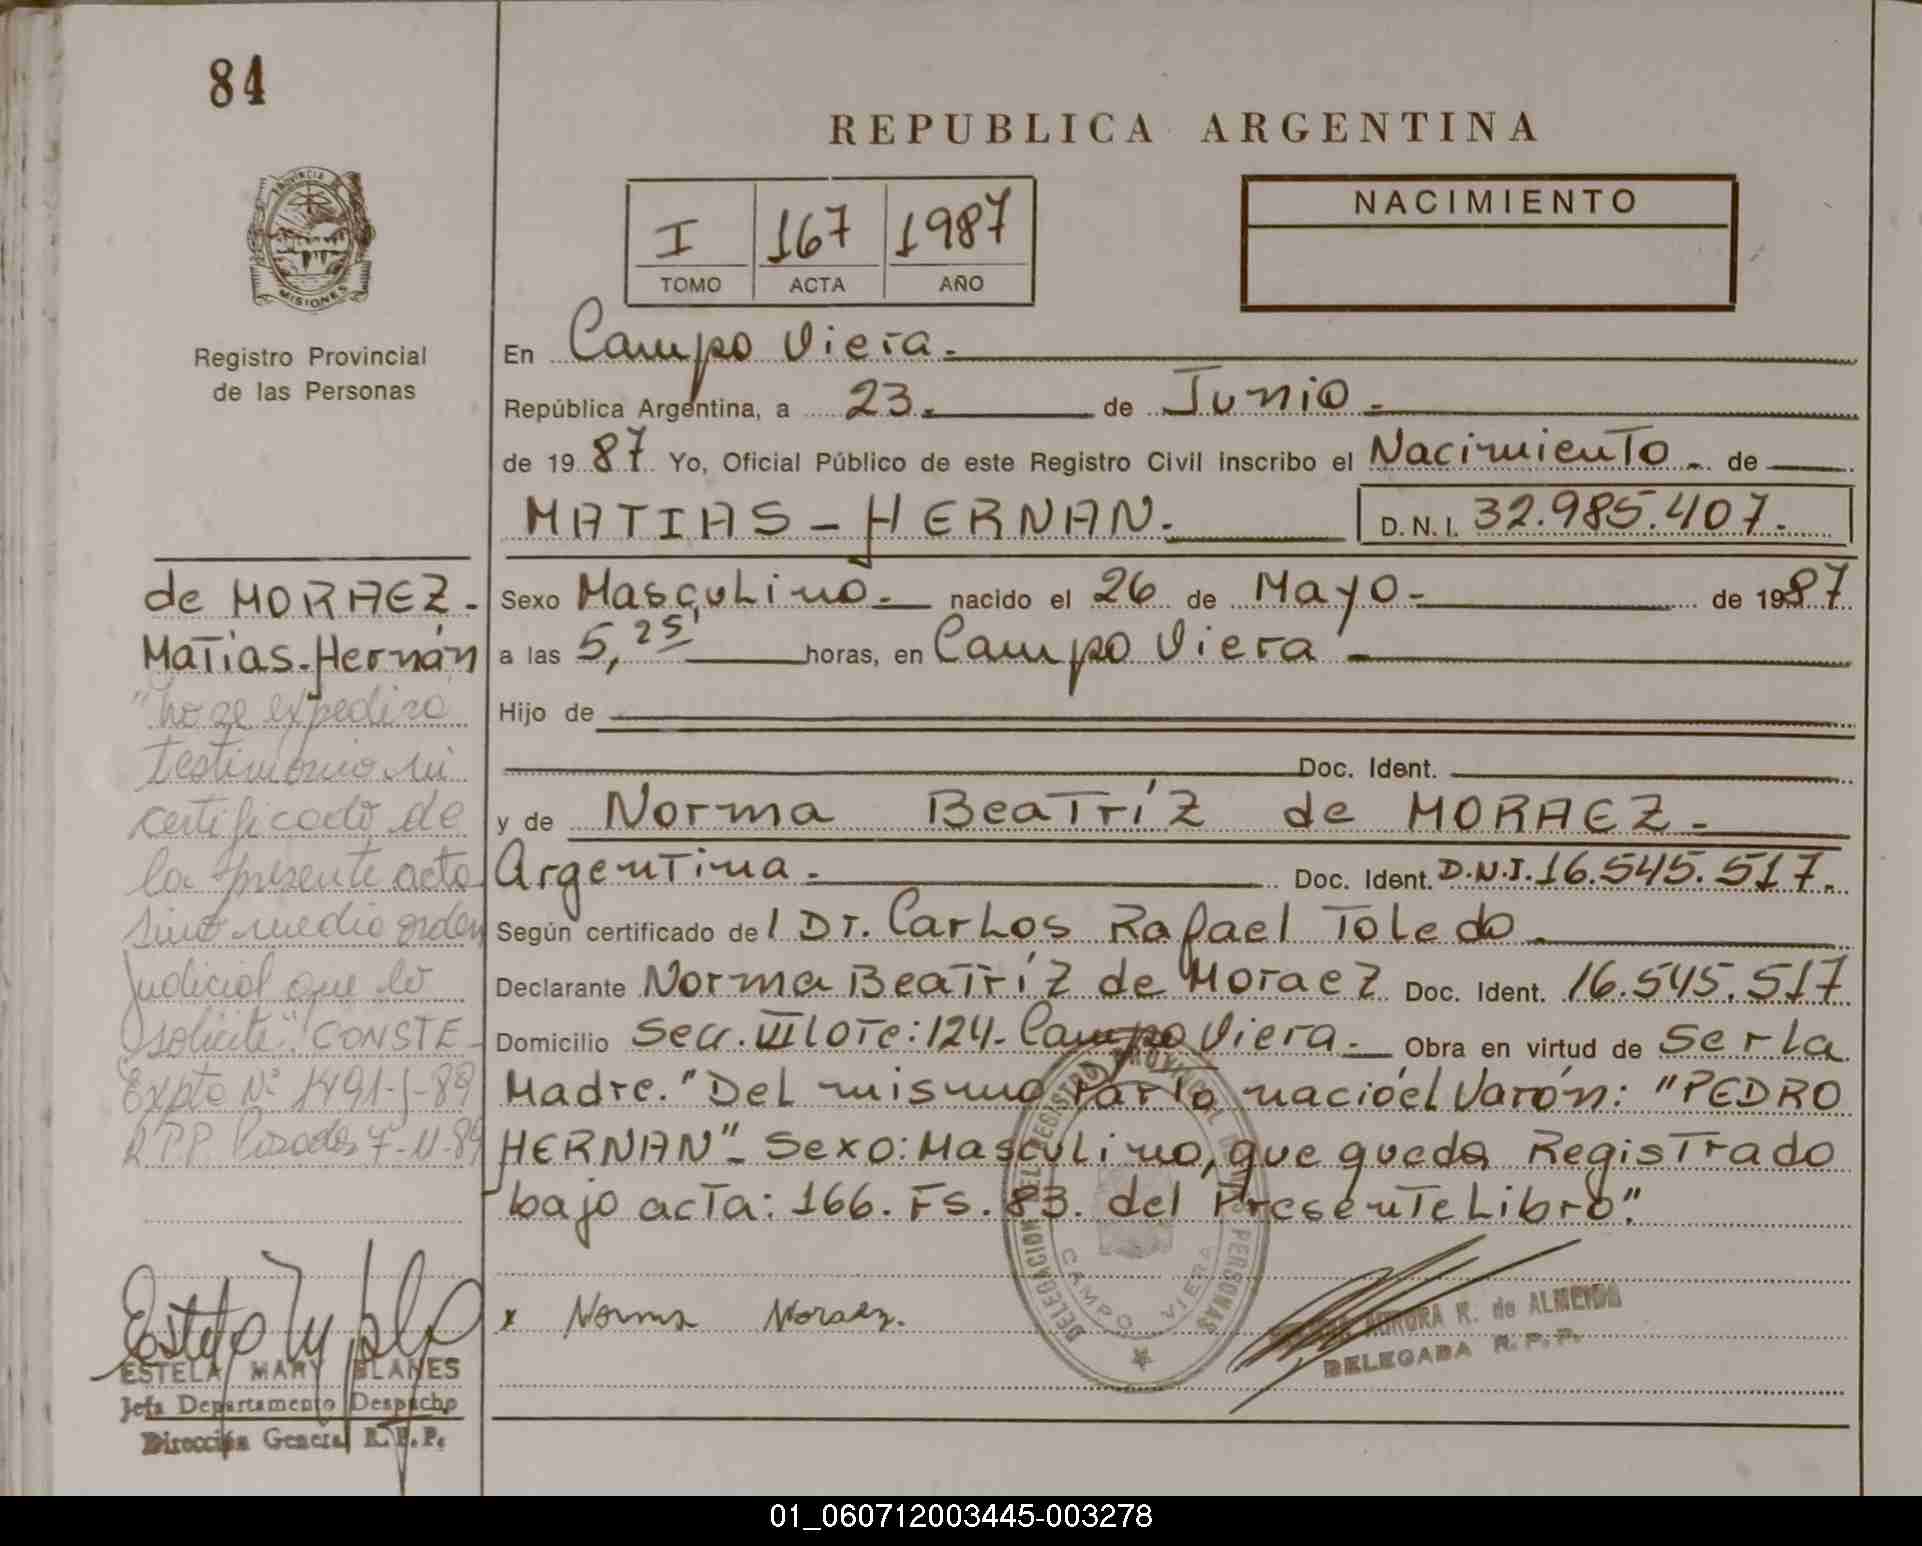 84
PROVINCIA DE
MISIONES
Registro Provincial
de las Personas
REPUBLICA ARGENTINA
I 167 1987
TOMO ACTA AÑO
NACIMIENTO
En Campo Viera.
República Argentina, a 23. de Junio.
de 1987 Yo, Oficial Público de este Registro Civil inscribo el Nacimiento. de
MATIAS - HERNAN. D.N.I. 32.985.407.
Sexo Masculino. nacido el 26 de Mayo de 1987
a las 5,25' horas, en Campo Viera
Hijo de
Doc. Ident.
y de Norma Beatríz de MORAEZ.
Argentina. Doc. Ident. D.N.I. 16.545.517.
Según certificado del Dr. Carlos Rafael Toledo.
Declarante Norma Beatríz de Moraez Doc. Ident. 16.545.517
Domicilio Secc. VII lote: 124. Campo Viera. Obra en virtud de ser la
Madre. "Del mismo Parto nació el Varón: "PEDRO
HERNAN". Sexo: Masculino, que queda Registrado
bajo acta: 166. Fs. 83. del Presente Libro."
x Norma Moraez.
DELEGACION DEL REGISTRO PROVINCIAL DE LAS PERSONAS
CAMPO VIERA
AURORA K. de ALMEIDA
DELEGADA R.P.P.
de MORAEZ.
Matias-Hernán
"no se expedirá
testimonio ni
certificado de
la presente acta
sino medio orden
judicial que lo
solicite". CONSTE
Expte Nº 1491-J-89
R.P.P. Posadas 7-11-89
ESTELA MARY BLANES
Jefa Departamento Despacho
Dirección General R.P.P.
01_060712003445-003278